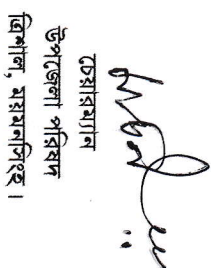 চেয়ারম্যান
উপজেলা পরিষদ
ত্রিশাল, ময়মনসিংহ।